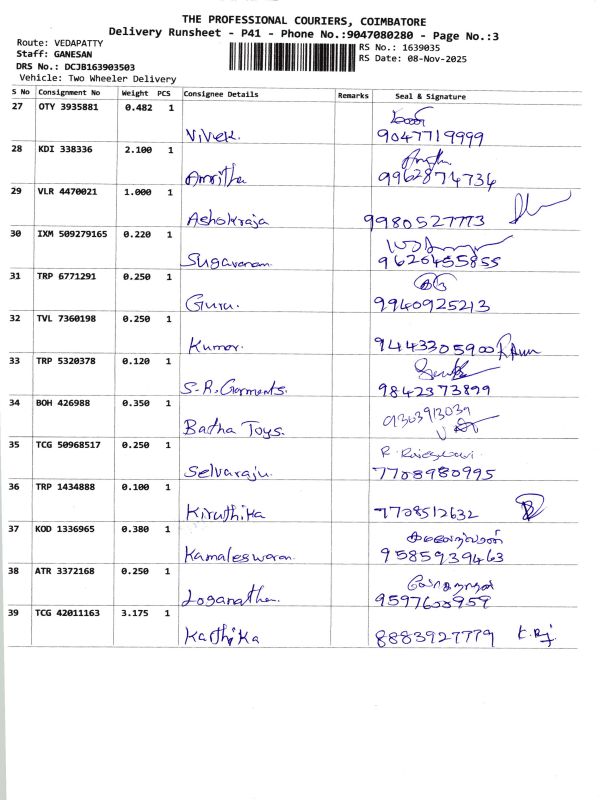 THE PROFESSIONAL COURIERS, COIMBATORE
Delivery Runsheet - P41 - Phone No.:9047080280 - Page No.:3
Route: VEDAPATTY
Staff: GANESAN
DRS No.: DCJB163903503
Vehicle: Two Wheeler Delivery
RS No.: 1639035
RS Date: 08-Nov-2025
S No Consignment No Weight PCS Consignee Details Remarks Seal & Signature
27 OTY 3935881 0.482 1
Vivek. 9047719999
28 KDI 338336 2.100 1
Amritha 9962874734
29 VLR 4470021 1.000 1
Ashokraja 9980527773
30 IXM 509279165 0.220 1
Sugavanam 9626455855
31 TRP 6771291 0.250 1
Guru. 9940925213
32 TVL 7360198 0.250 1
Kumar. 9444330590
33 TRP 5320378 0.120 1
S.R. Garments. 9842373899
34 BOH 426988 0.350 1
9363913039
Badha Toys.
35 TCG 50968517 0.250 1
Selvaraju. 7708980995
36 TRP 1434888 0.100 1
Kiruthika 7708512632
37 KOD 1336965 0.380 1
Kamaleswaran. 9585939463
38 ATR 3372168 0.250 1
Loganathan. 9597600959
39 TCG 42011163 3.175 1
Karthika 8883927779